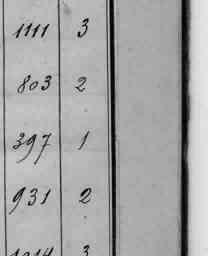 1111 3
803 2
397 1
931 2
3